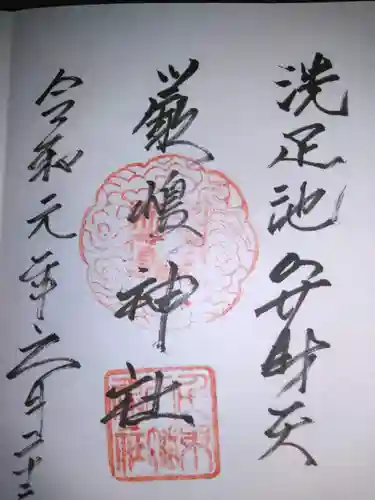 洗足池の弁財天
厳嶋神社
令和元年六月二十三